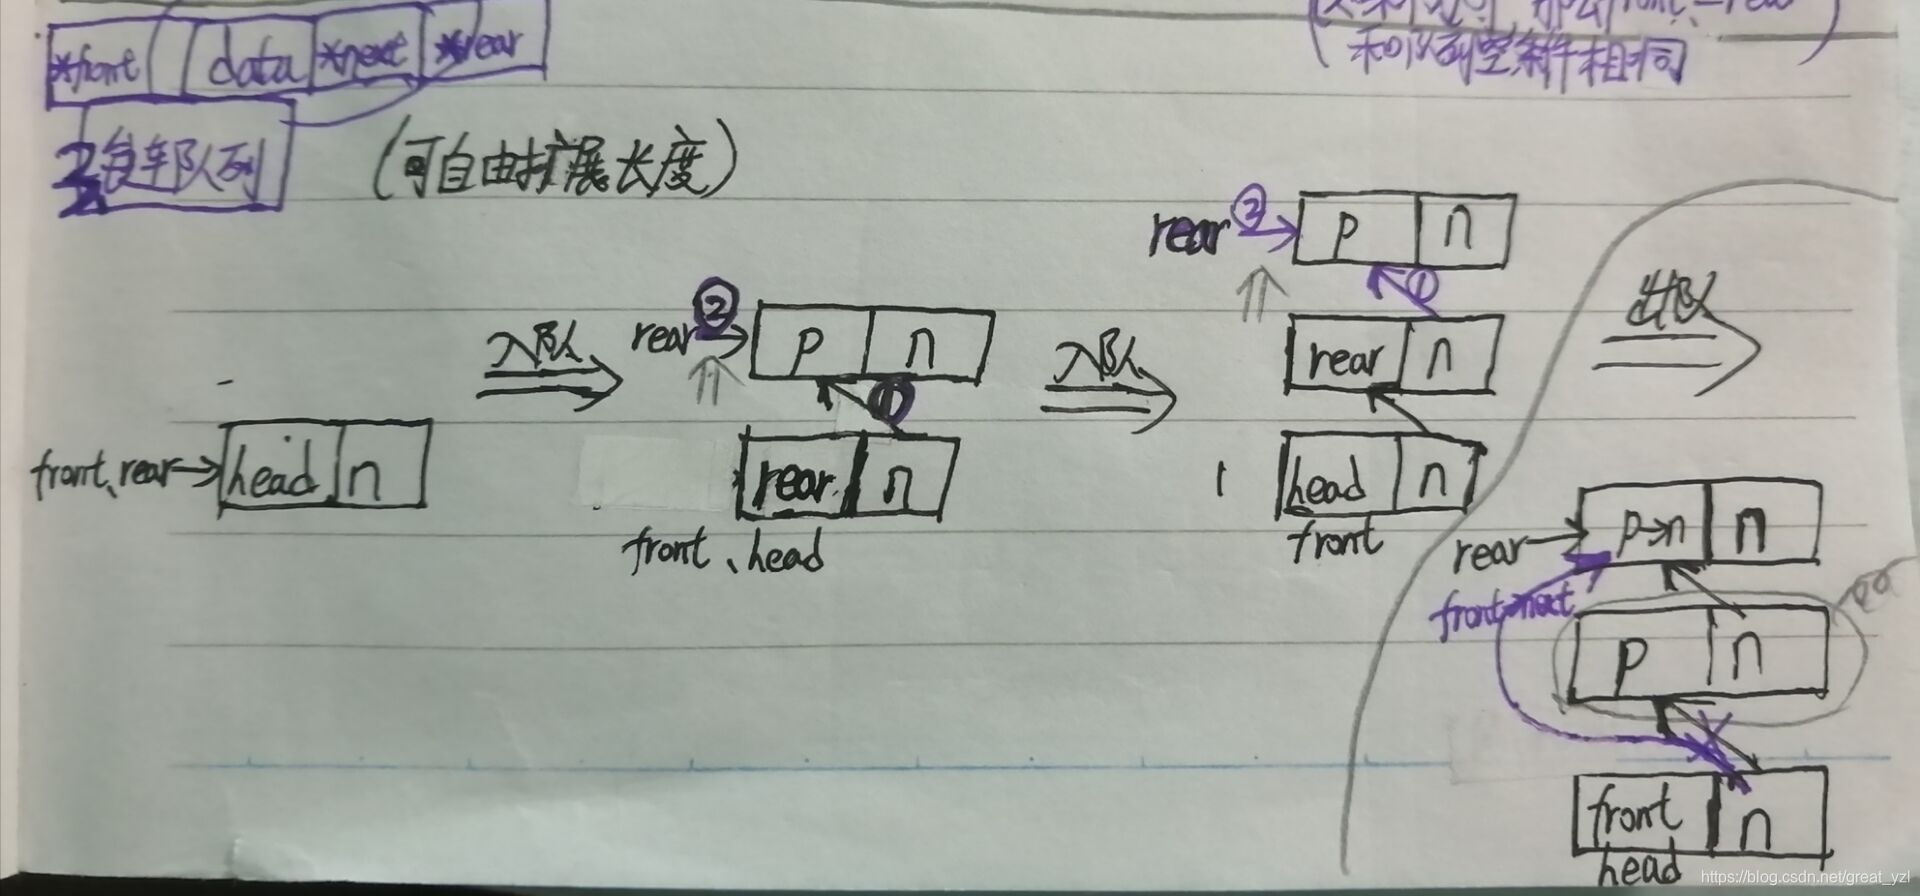 *front data *next *rear
和队列空条件相同
2链队列 (可自由扩展长度)
rear ② p n
①
出队
rear ② p n
入队
入队
rear n
①
front、rear head n
rear n
head n
front、head
front
rear p→n n
front→next
p n
front n
head
https://blog.csdn.net/great_yzl